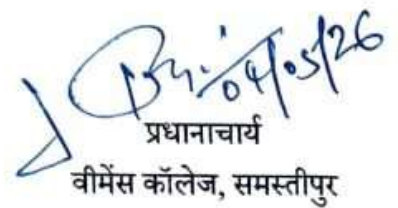 04/05/26
प्रधानाचार्य
वीमेंस कॉलेज, समस्तीपुर